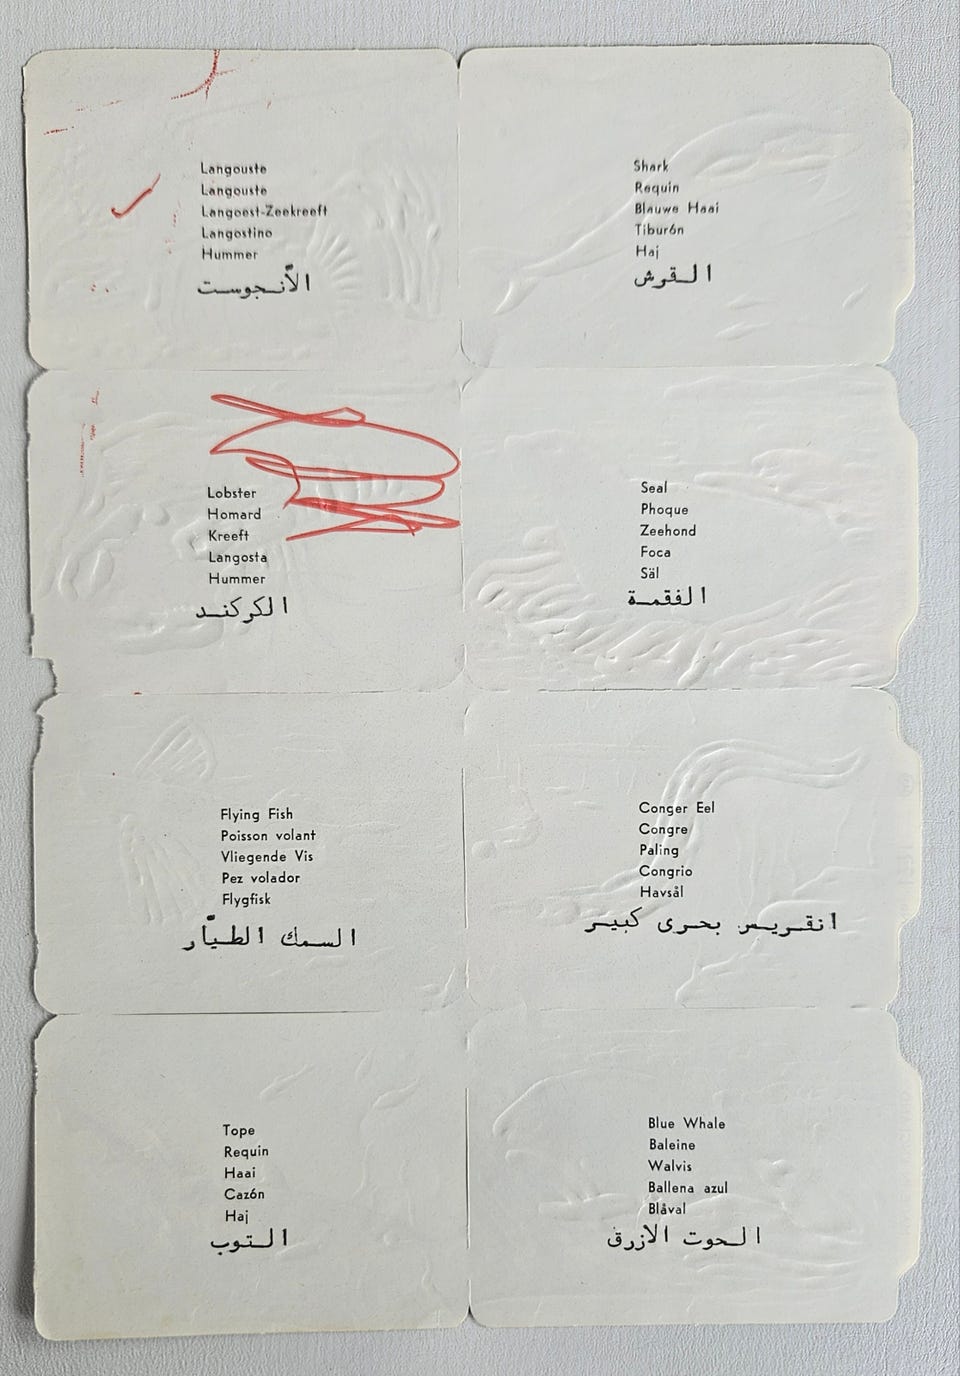 Langouste
Langouste
Langoest-Zeekreeft
Langostino
Hummer
الأنجوست
Shark
Requin
Blauwe Haai
Tiburón
Haj
القرش
Lobster
Homard
Kreeft
Langosta
Hummer
الكركند
Seal
Phoque
Zeehond
Foca
Säl
الفقمة
Flying Fish
Poisson volant
Vliegende Vis
Pez volador
Flygfisk
السمك الطيّار
Conger Eel
Congre
Paling
Congrio
Havsål
انقريس بحرى كبير
Tope
Requin
Haai
Cazón
Haj
التوب
Blue Whale
Baleine
Walvis
Ballena azul
Blåval
الحوت الازرق